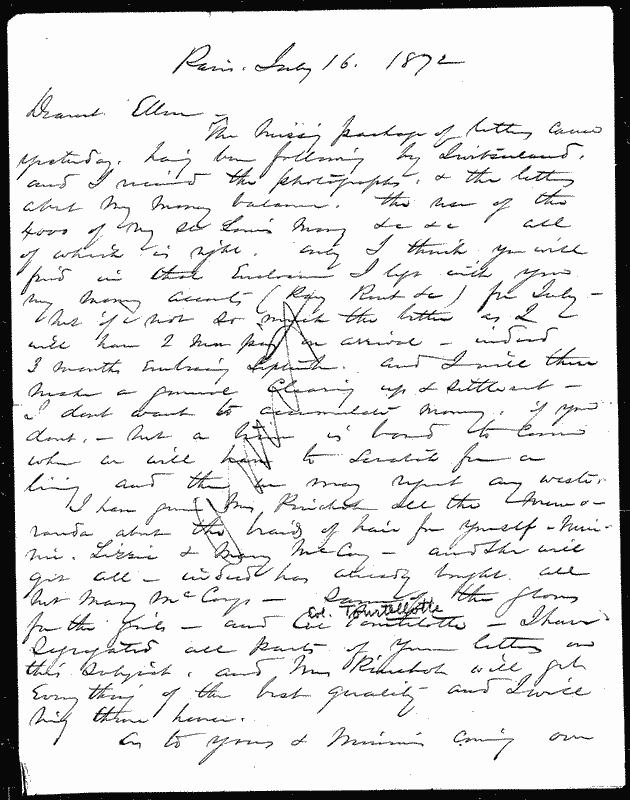 Paris. July 16. 1872
Dearest Ellen -
The missing package of letters came
yesterday. having been following by Switzerland.
and I received the photographs. & the letters
about my money balance. the use of the
4000 of my St Louis Money &c &c all
of which is right. only I think you will
find in that Enclosure I left with you
my money accounts ( Pay Rent &c ) for July -
but if not so much the better as I
will have 2 Mos pay on arrival - indeed
3 months Embracing September. and I will then
make a general Clearing up & settlement -
I dont want to accumulate money. if you
dont. - but a time is bound to come
when we will have to scratch for a
living and then we may repent any waste.
I have given Mrs. the Memo-
randa about the braids of hair for yourself - Min-
nie. Lizzie & Mary McCoy - and she will
get all - indeed has already bought all
but Mary McCoys - Same of the gloves
for the girls - and Col Tourtellotte - I have
Col. Tourtellotte
Segregated all parts of your letters on
this Subject. and Mrs will get
Everything of the best quality and I will
bring them home.
As to yours & Minnies coming over